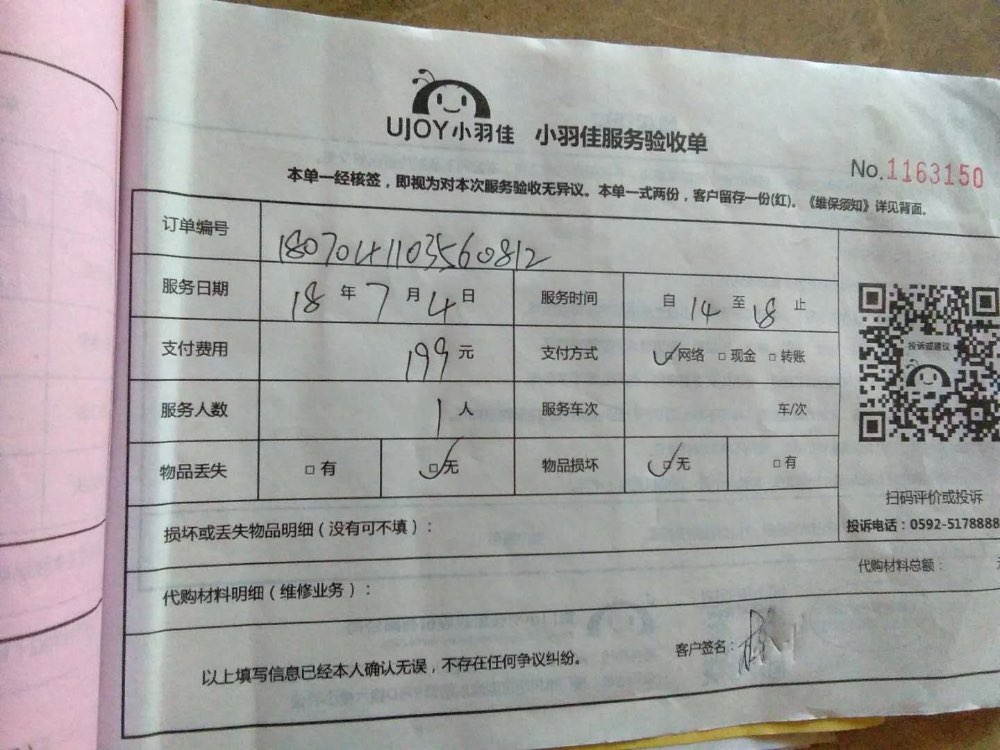 UJOY小羽佳 小羽佳服务验收单
No.1163150
本单一经核签，即视为对本次服务验收无异议。本单一式两份，客户留存一份(红)。《维保须知》详见背面。
订单编号 1807041103560812
服务日期 18 年 7 月 4 日 服务时间 自 14 至 18 止
支付费用 199 元 支付方式 ☑网络 □现金 □转账
投诉或建议
服务人数 1 人 服务车次 车/次
物品丢失 □有 ☑无 物品损坏 ☑无 □有
扫码评价或投诉
损坏或丢失物品明细（没有可不填）：
投诉电话：0592-5178888
代购材料总额：
代购材料明细（维修业务）：
以上填写信息已经本人确认无误，不存在任何争议纠纷。
客户签名：